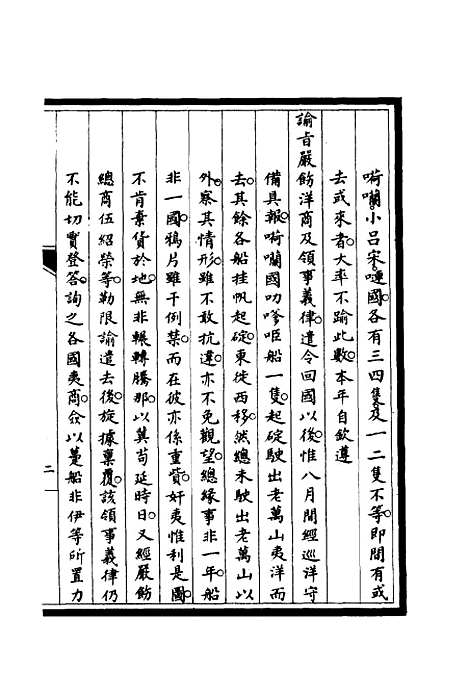 嗬囒小呂宋嗹國各有三四隻及一二隻不等即間有或
去或來者大率不踰此數本年自欽遵
諭旨嚴飭洋商及領事義律遣令回國以後惟八月間經巡洋守
備具報嗬囒國叻嗲㖀船一隻起碇駛出老萬山夷洋而
去其餘各船挂帆起碇東徙西移然總未駛出老萬山以
外察其情形雖不敢抗違亦不免觀望總緣事非一年船
非一國鴉片雖干例禁而在彼亦係重貲奸夷惟利是圖
不肯棄貨於地無非輾轉騰那以冀苟延時日又經嚴飭
總商伍紹榮等勒限諭遣去後旋據稟覆該領事義律仍
不能切實登答詢之各國夷商僉以躉船非伊等所置力
二